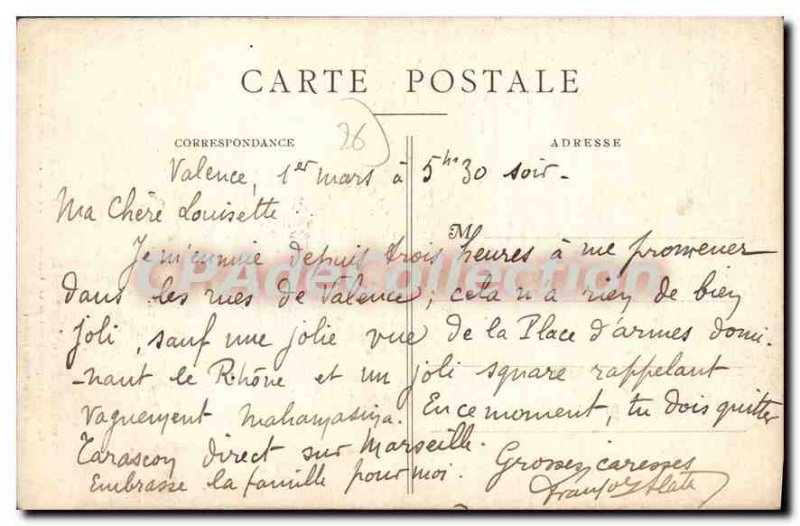 CARTE POSTALE
26
CORRESPONDANCE
ADRESSE
Valence, 1er mars à 5hs 30 soir.
Ma Chère Louisette
M
Je m'ennuie depuis trois heures à me promener
dans les rues de Valence ; cela n'a rien de bien
joli, sauf une jolie vue de la Place d'armes domi-
-nant le Rhône et un joli square rappelant
vaguement . En ce moment, tu dois quitter
Tarascon direct sur Marseille.
Grosses caresses
Embrasse la famille pour moi.
CPAdeCollection